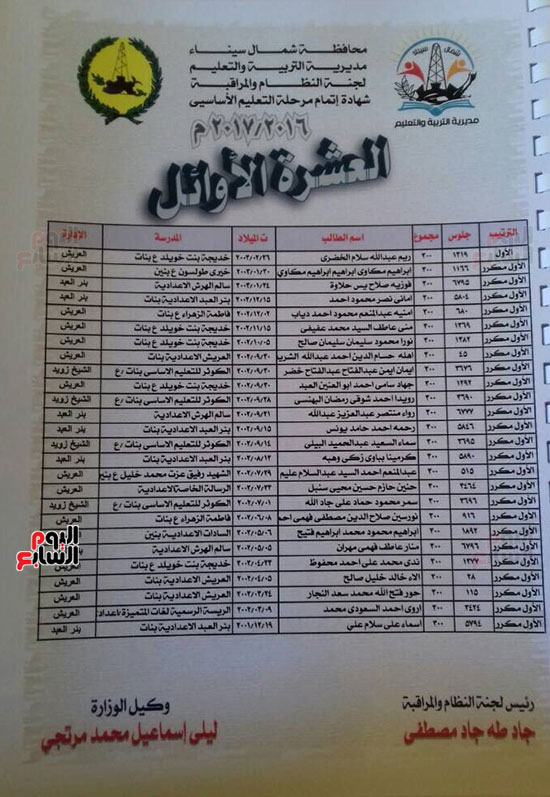 محافظة شمال سيناء
مديرية التربية والتعليم
لجنة النظام والمراقبة
شهادة إتمام مرحلة التعليم الأساسيى
٢٠١٧/٢٠١٦ م
شمال سيناء
مديرية التربية والتعليم
العشرة الأوائل
الترتيب جلوس مجموع اسم الطالب ت الميلاد المدرسة الإدارة
الأول ١٣١٩ ٣٠٠ ريم عبدالله سلام الخضرى ٢٠٠٢/٠٢/٢٦ خديجة بنت خويلد ع بنات العريش
الأول مكرر ١١٦٦ ٣٠٠ ابراهيم مكاوى ابراهيم ابراهيم مكاوى ٢٠٠٢/٠١/٣٠ خيرى طولسون ع بنين العريش
الأول مكرر ٦٧٩٥ ٣٠٠ فوزيه صلاح يس حلاوة ٢٠٠٢/٠١/٢٤ سالم الهرش الاعدادية بئر العبد
الأول مكرر ٥٨٠٤ ٣٠٠ امانى نصر محمود احمد ٢٠٠٢/١٢/١٥ بنر العبد الاعدادية بنات بئر العبد
الأول مكرر ٦٨٠ ٣٠٠ امنيه عبدالمنعم محمود احمد دياب ٢٠٠٢/١٢/٠٢ فاطمة الزهراء ع بنات العريش
الأول مكرر ١٣٦٩ ٣٠٠ منى عاطف السيد محمد عفيفى ٢٠٠٢/١١/١٥ خديجة بنت خويلد ع بنات العريش
الأول مكرر ١٣٨٢ ٣٠٠ نورا محمود سليمان سليمان صالح ٢٠٠٢/١٠/٠٥ خديجة بنت خويلد ع بنات العريش
الأول مكرر ٤٥ ٣٠٠ اهله حسام الدين احمد عبدالله الشريف ٢٠٠٢/٠٩/٣٠ العريش الاعدادية بنات العريش
الأول مكرر ٣٦٧٦ ٣٠٠ ايمان ايمن عبدالفتاح عبدالفتاح خضر ٢٠٠٢/٠٩/٣٠ الكوثر للتعليم الاساسى بنات /ع الشيخ زويد
الأول مكرر ١٢٩٢ ٣٠٠ جهاد سامى احمد ابو العنين العبد ٢٠٠٢/٠٩/٣٠ خديجة بنت خويلد ع بنات العريش
الأول مكرر ٣٦٩٠ ٣٠٠ رويدا احمد شوقى رمضان البهنسى ٢٠٠٢/٠٩/٢٨ الكوثر للتعليم الاساسى بنات /ع الشيخ زويد
الأول مكرر ٦٧٧٧ ٣٠٠ رواء منتصر عبدالعزيز عبدالله ٢٠٠٢/٠٩/٢١ سالم الهرش الاعدادية بئر العبد
الأول مكرر ٥٨٤٦ ٣٠٠ رحمه احمد حامد يونس ٢٠٠٢/٠٩/١٥ بنر العبد الاعدادية بنات بئر العبد
الأول مكرر ٣٦٩٥ ٣٠٠ سماء السعيد عبدالحميد البيلى ٢٠٠٢/٠٩/١٤ الكوثر للتعليم الاساسى بنات /ع الشيخ زويد
الأول مكرر ٥٨٩٠ ٣٠٠ كرمينا بباوى زكى وهبه ٢٠٠٢/٠٨/١٢ بنر العبد الاعدادية بنات بئر العبد
الأول مكرر ٥١٥ ٣٠٠ عبدالمنعم احمد السيد عبدالسلام عليم ٢٠٠٢/٠٧/٢٩ الشهيد رفيق عزت محمد خليل ع بنين العريش
الأول مكرر ٣٤٦٤ ٣٠٠ حنين حازم حسين محيى سنبل ٢٠٠٢/٠٧/٢٣ الرسالة الخاصة الاعدادية العريش
الأول مكرر ٣٦٩٦ ٣٠٠ سمر محمود حماد على جاد الله ٢٠٠٢/٠٧/٠١ الكوثر للتعليم الاساسى بنات /ع الشيخ زويد
الأول مكرر ٩١٦ ٣٠٠ نورسين صلاح الدين مصطفى فهمى احمد ٢٠٠٢/٠٦/٠٨ فاطمة الزهراء ع بنات العريش
الأول مكرر ١٨٩٢ ٣٠٠ ابراهيم محمود محمد ابراهيم فتيح ٢٠٠٢/٠٥/٠٦ السادات الاعدادية بنين العريش
الأول مكرر ٦٧٩٦ ٣٠٠ منار عاطف فهمى مهران ٢٠٠٢/٠٥/٠٥ سالم الهرش الاعدادية
الأول مكرر ١٣٧٧ ٣٠٠ ندى محمد على احمد محفوظ ٢٠٠٢/٠٤/٢٣ خديجة بنت خويلد ع بنات العريش
الأول مكرر ٢٨ ٣٠٠ الاء خالد خليل صالح ٢٠٠٢/٠٤/٠٥ العريش الاعدادية بنات العريش
الأول مكرر ١١٥ ٣٠٠ حور فتح الله محمد سعد النجار ٢٠٠٢/٠٢/٢٤ العريش الاعدادية بنات العريش
الأول مكرر ٣٤٢٤ ٣٠٠ اروى احمد السعودى محمد ٢٠٠٢/٠٢/٠٩ الريسة الرسمية لغات المتميزة ياعداد العريش
الأول مكرر ٥٧٩٤ ٣٠٠ اسماء على سلام على ٢٠٠١/١٢/١٩ بنر العبد الاعدادية بنات بئر العبد
اليوم السابع
رئيس لجنة النظام والمراقبة
جاد طه جاد مصطفى
وكيل الوزارة
ليلى إسماعيل محمد مرتجي